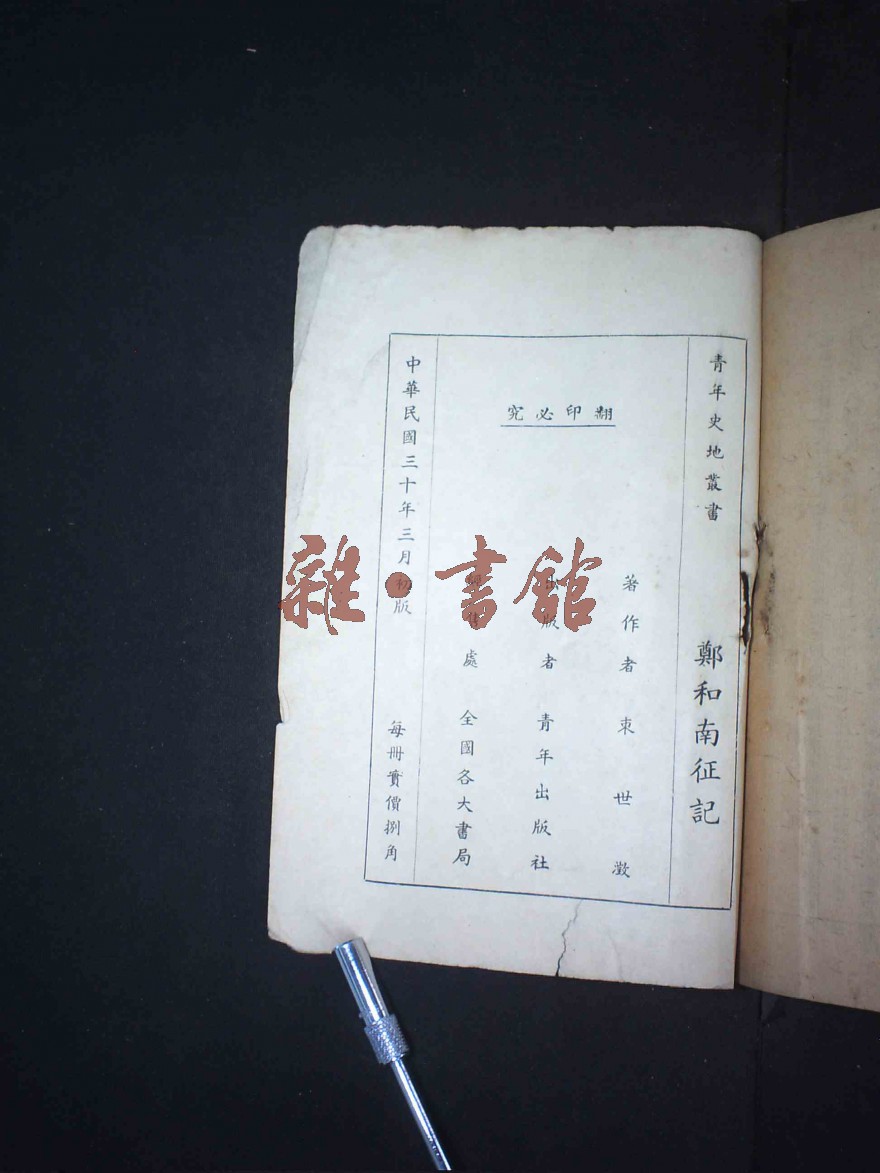 青年史地叢書
鄭和南征記
翻印必究
著作者 束世澂
出版者 青年出版社
處 全國各大書局
中華民國三十年三月初版
每冊實價捌角
雜·書館